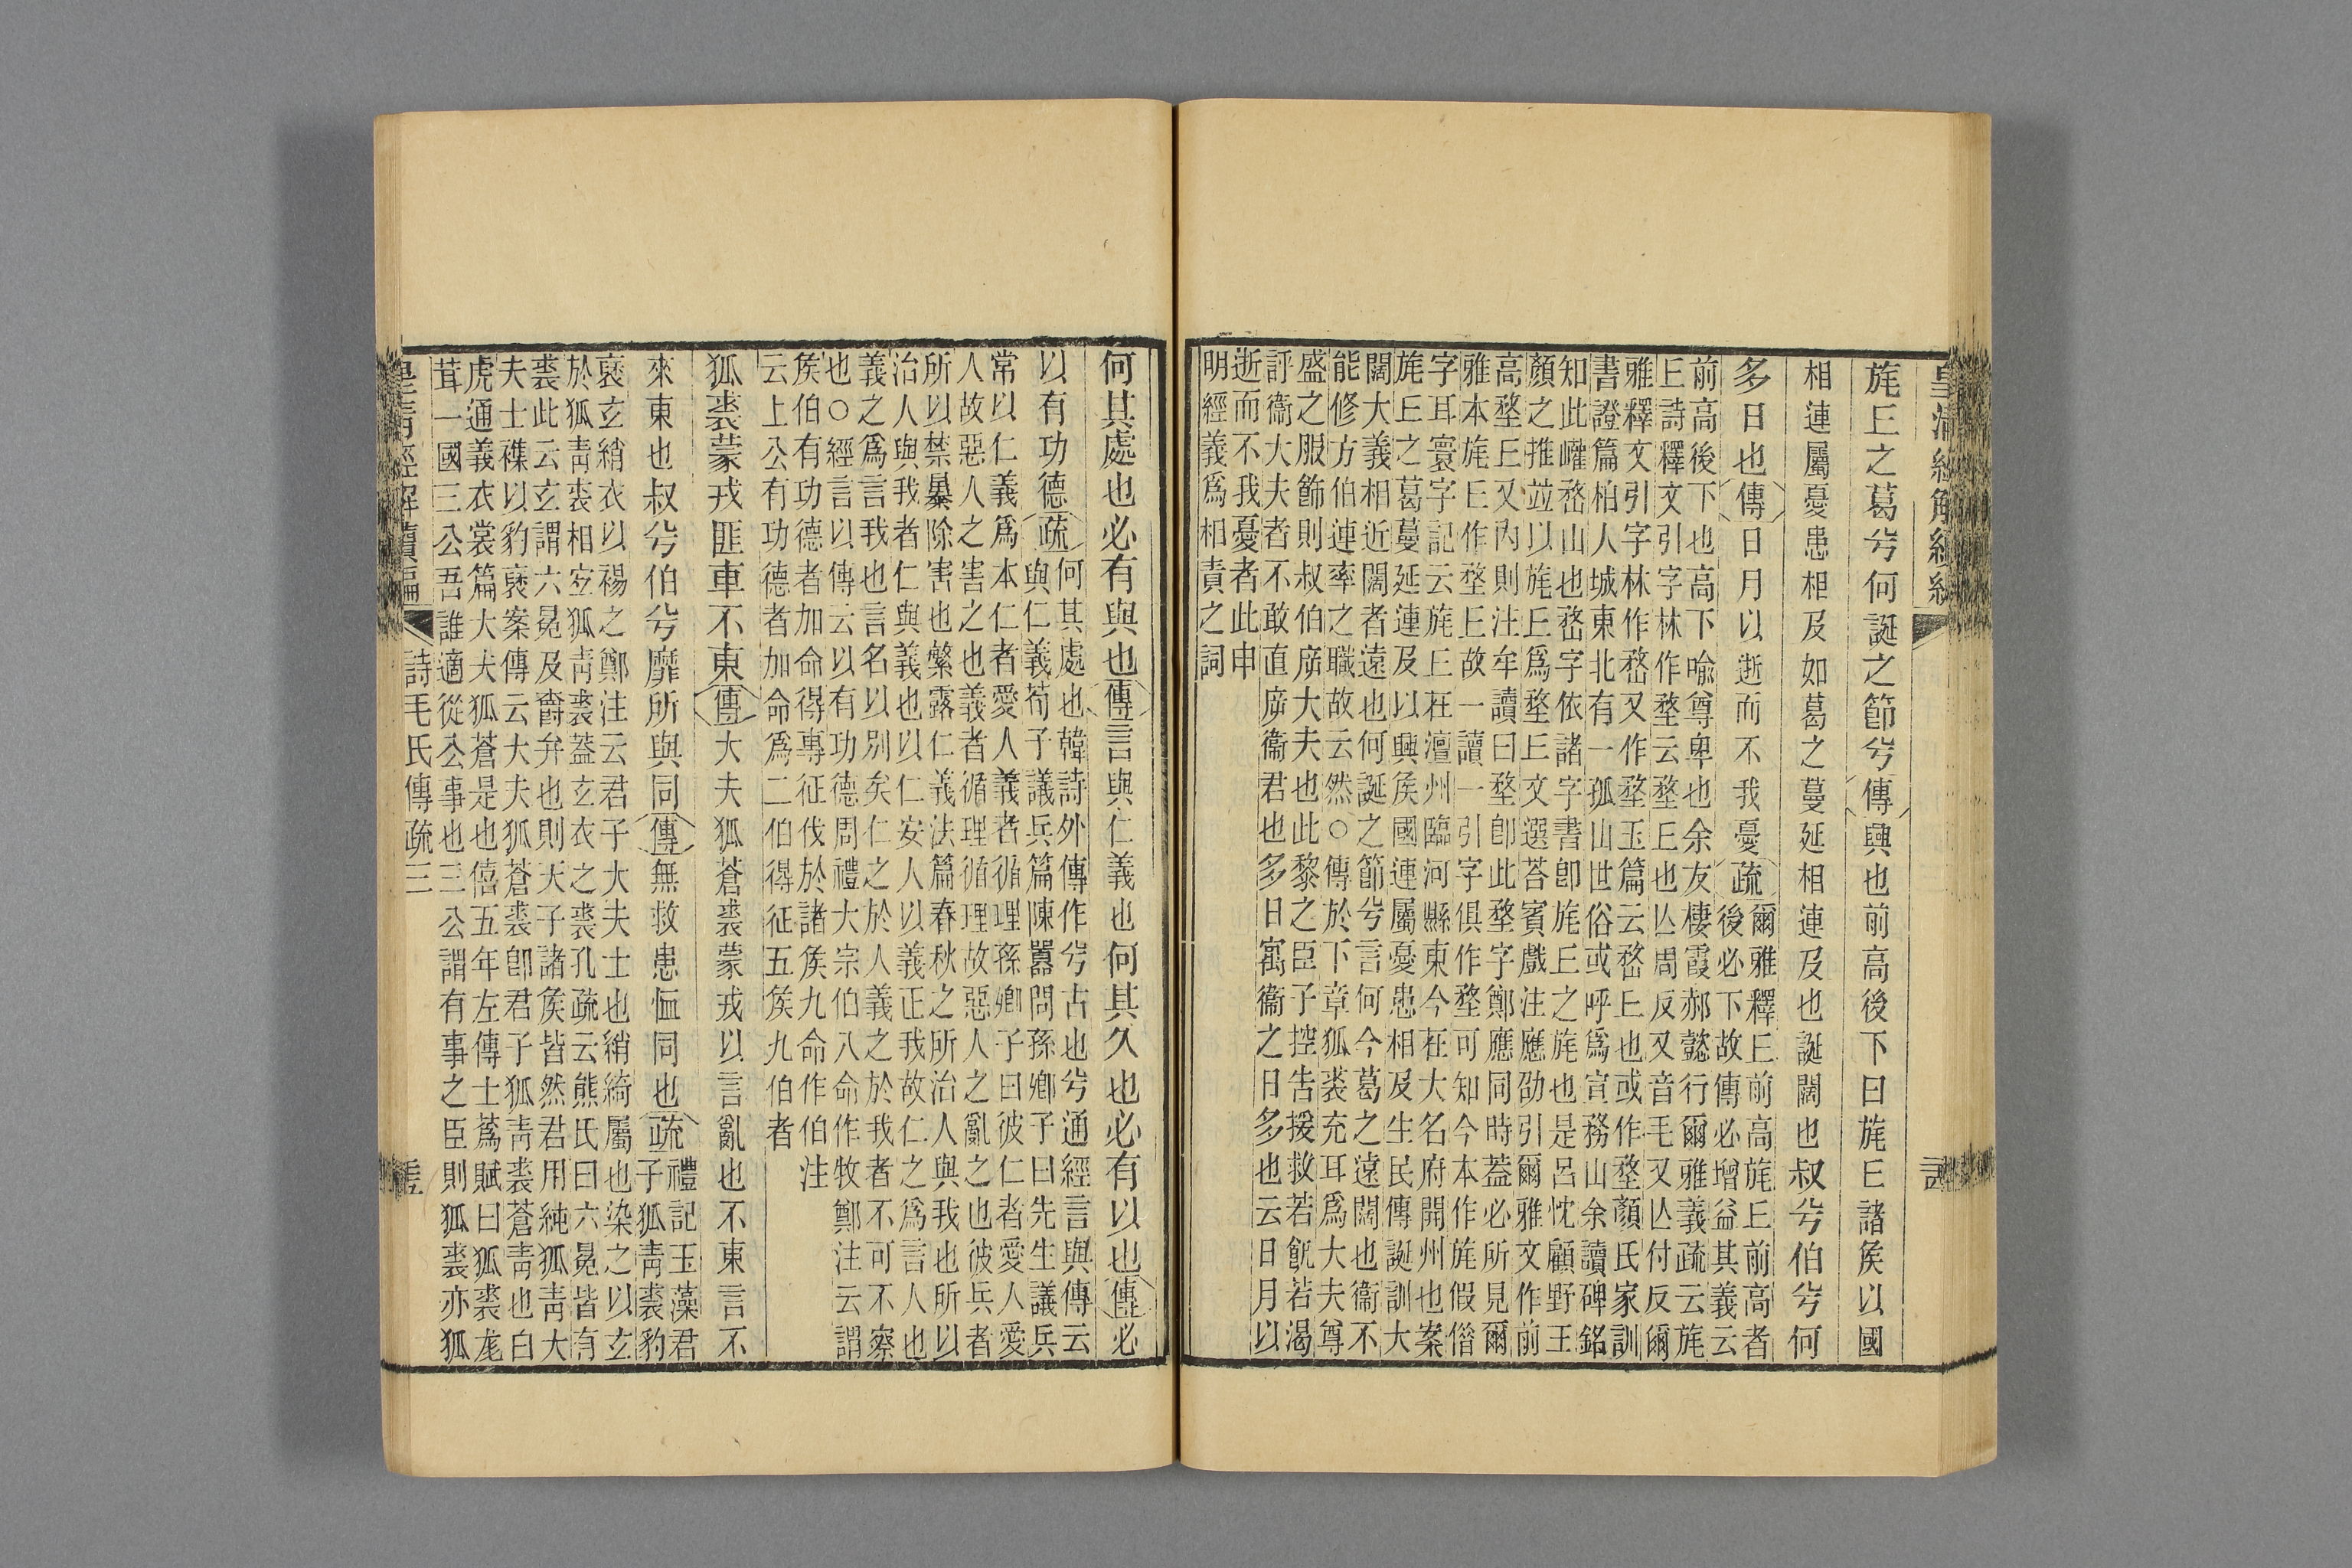 皇清經解續編
旄丘之葛兮何誕之節兮傳興也前高後下曰旄丘諸矦以國
相連屬憂患相及如葛之蔓延相連及也誕闊也叔兮伯兮何
多日也傳日月以逝而不我憂疏
爾雅釋丘前高旄丘前高者
後必下故傳必增益其義云
前高後下也高下喻尊卑也余友棲霞郝懿行爾雅義疏云旄
丘詩釋文引字林作堥云堥丘也亾周反又音毛又亾付反爾
雅釋文引字林作嵍又作堥玉篇云嵍丘也或作堥顏氏家訓
書證篇柏人城東北有一孤山世俗或呼爲宣務山余讀碑銘
知此巏嵍山也嵍字依諸字書卽旄丘之旄也是呂忱顧野王
顏之推竝以旄丘爲堥丘文選荅賓戲注應劭引爾雅文作前
高堥丘又內則注牟讀曰堥卽此堥字鄭應同時蓋必所見爾
雅本旄丘作堥丘故一讀一引字俱作堥可知今本作旄假偕
字耳寰宇記云旄丘在澶州臨河縣東今在大名府開州也案
旄丘之葛蔓延連及以興矦國連屬憂患相及生民傳誕訓大
闊大義相近闊者遠也何誕之節兮言何今葛之遠闊也衞不
能修方伯連率之職故云然○傳於下章狐裘充耳爲大夫尊
盛之服飾則叔伯庴大夫也此黎之臣子控告援救若飢若渴
評衞大夫者不敢直庴衞君也多日寓衞之日多也云日月以
逝而不我憂者此申
明經義爲相責之詞
何其處也必有與也傳言與仁義也何其久也必有以也傳必
以有功德疏
何其處也韓詩外傳作兮古也兮通經言與傳云
與仁義荀子議兵篇陳囂問孫鄉子曰先生議兵
常以仁義爲本仁者愛人義者循理孫鄉子曰彼仁者愛人愛
人故惡人之害之也義者循理循理故惡人之亂之也彼兵者
所以禁暴除害也繁露仁義法篇春秋之所治人與我也所以
治人與我者仁與義也以仁安人以義正我故仁之爲言人也
義之爲言我也言名以別矣仁之於人義之於我者不可不察
也○經言以傳云以有功德周禮大宗伯八命作牧鄭注云謂
矦伯有功德者加命得專征伐於諸矦九命作伯注
云上公有功德者加命爲二伯得征五矦九伯者
狐裘蒙戎匪車不東傳大夫狐蒼裘蒙戎以言亂也不東言不
來東也叔兮伯兮靡所與同傳無救患恤同也疏
禮記玉藻君
子狐青裘豹
褎玄綃衣以裼之鄭注云君子大夫士也綃綺屬也染之以玄
於狐青裘相宜狐青裘蓋玄衣之裘孔疏云熊氏曰六冕皆有
裘此云玄謂六冕及爵弁也則天子諸矦皆然君用純狐青大
夫士襍以豹褎案傳云大夫狐蒼裘卽君子狐青裘蒼青也白
虎通義衣裳篇大夫狐蒼是也僖五年左傳士蔿賦曰狐裘尨
茸一國三公吾誰適從公事也三公謂有事之臣則狐裘亦狐
皇清經解續編
詩毛氏傳疏三